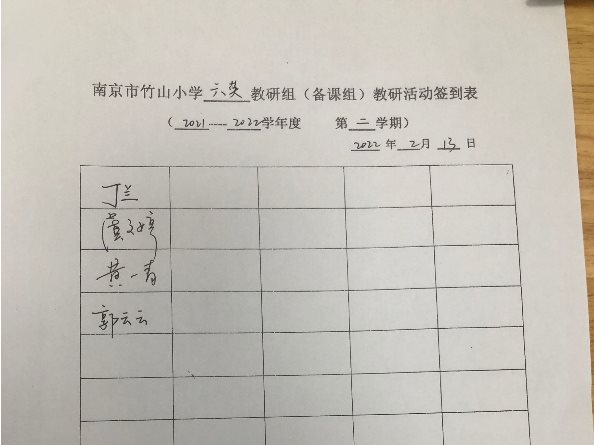 南京市竹山小学六英教研组（备课组）教研活动签到表
（2021----2022学年度 第二学期）
2022年2月13日
丁兰
黄文婷
黄一青
郭云云